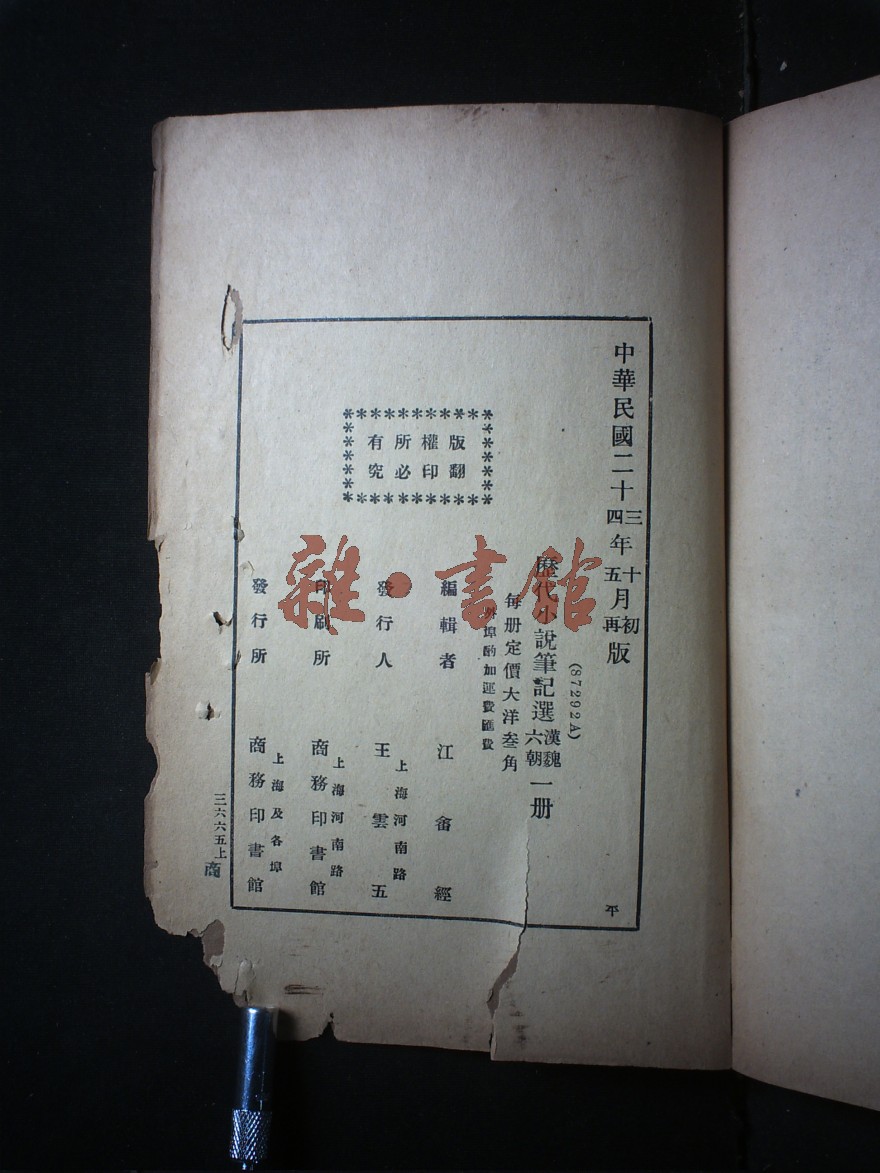 中華民國二十三年十月初版
四年五月再版
(87292A)
歷代小說筆記選漢魏六朝一册
每册定價大洋叁角
外埠酌加運費匯費
版權所有
翻印必究
編輯者 江畬經
上海河南路
發行人 王雲五
上海河南路
印刷所 商務印書館
上海及各埠
發行所 商務印書館
三六六五上
商
平
雜·書館